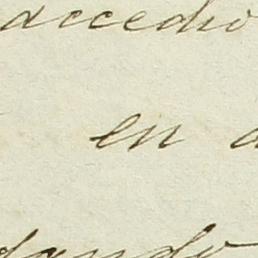 accedio
en a
dando